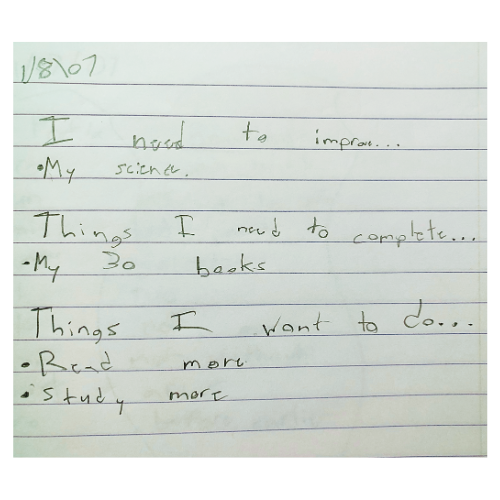 1/8\07
I need to improve...
•My science.
Things I need to complete...
•My 30 books
Things I want to do...
•Read more
•Study more